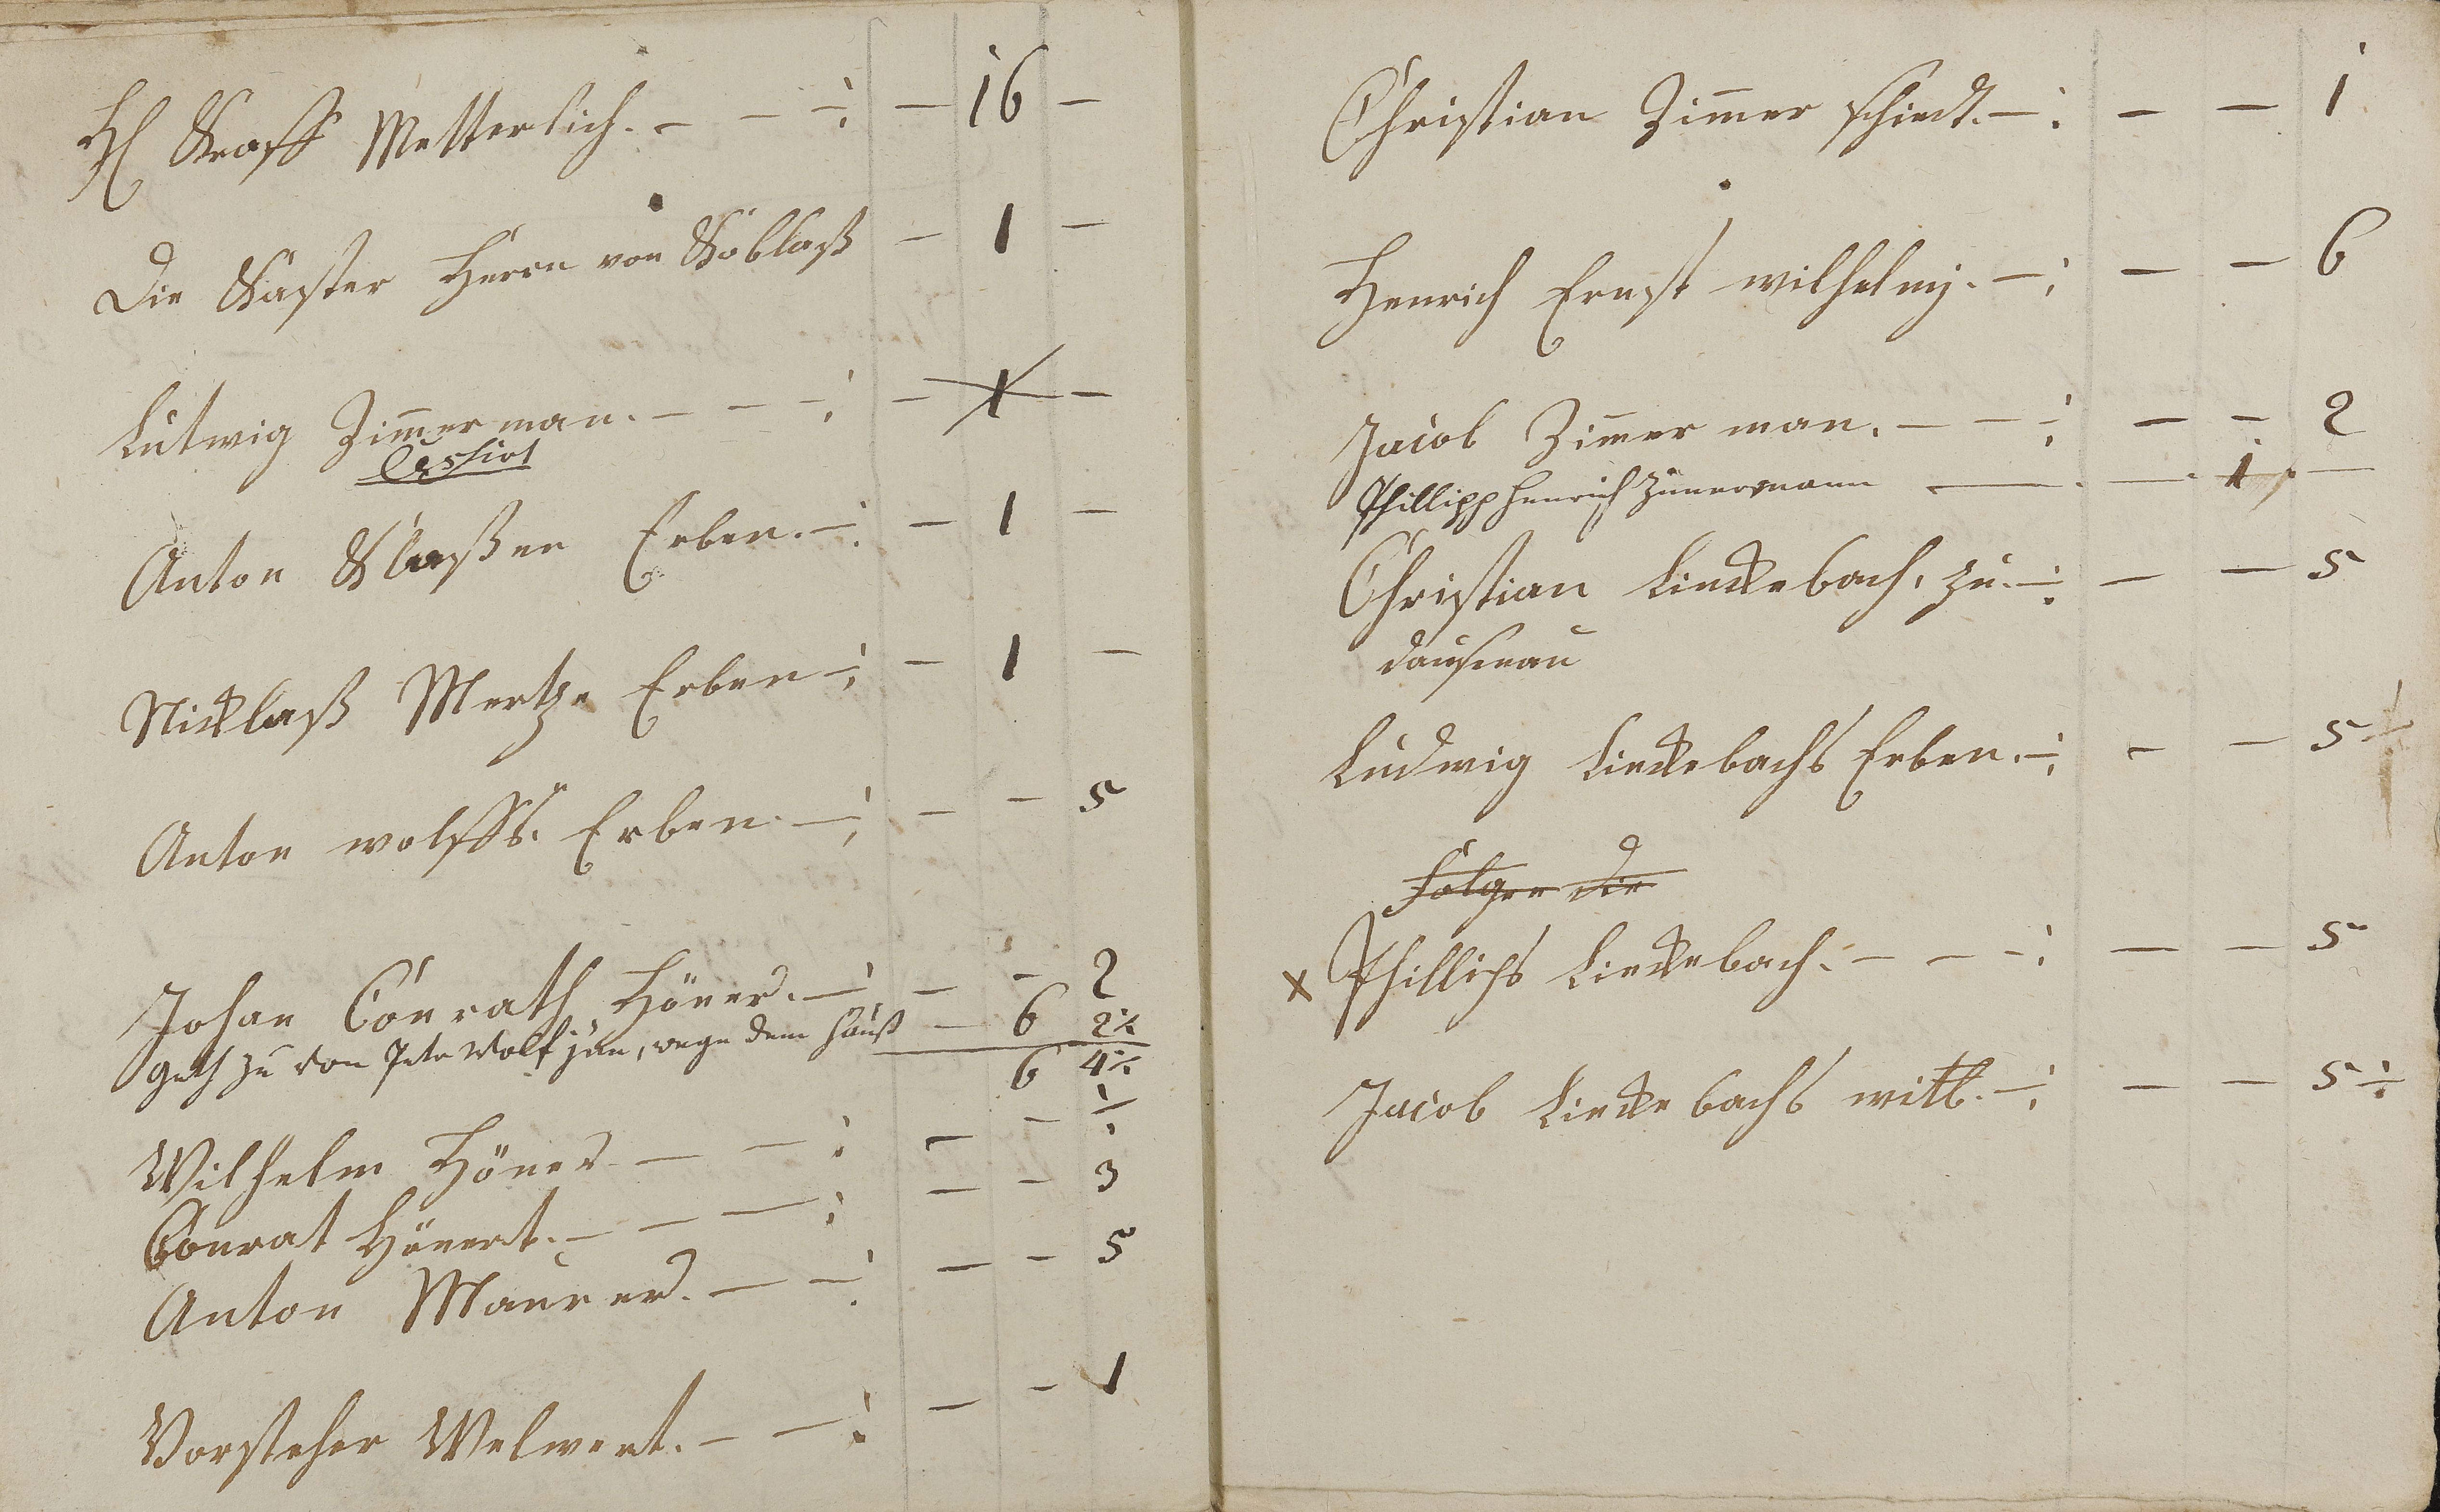 H Graff Metterlich. - - ÷ - 16 -
Die Closter Herrn von - 1 -
Lutwig Zim̄erman. - - ÷ - 1 -
Cessirt
Anton Claßen Erben. ÷ - 1 -
Nicklaß Mertze Erben ÷ - 1 -
Anton wolffs Erben. ÷ - - 5
Johan Conrath Höner. ÷ - - 2
geth zu von Peter Wolf jun, wege dem Hauß - 6 2½
6 4½
Wilhelm Höner - - ÷ - - ÷
Conrat Hönert. - - ÷ - - 3
Anton Maurer. - ÷ - - 5
Vorsteher Welwert. - ÷ - - 1
Christian Zim̄er schiedt. ÷ - - 1
Henrich Ernst wilhelmj. ÷ - - 6
Jacob Zim̄er man. - - ÷ - - 2
Phillipp Henrich Zimmermann — — 1 —
Christian Linckebach, zu ÷ - - 5
dausenau
Ludwig Linckebachs Erben. ÷ - - 5 ÷
Folgen die
x Phillips Linckebach. - - ÷ - - 5
Jacob Linckebachs witb. ÷ - - 5 ÷